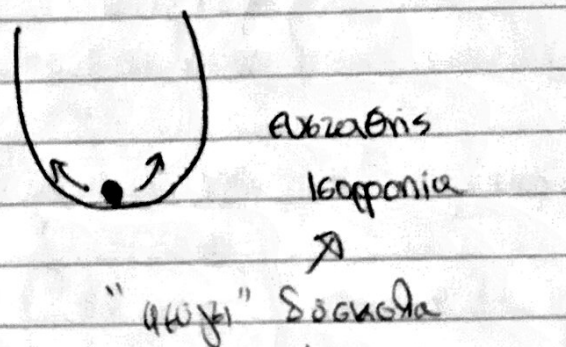 ευσταθης
ισορροπια
" φευγει " δυσκολα